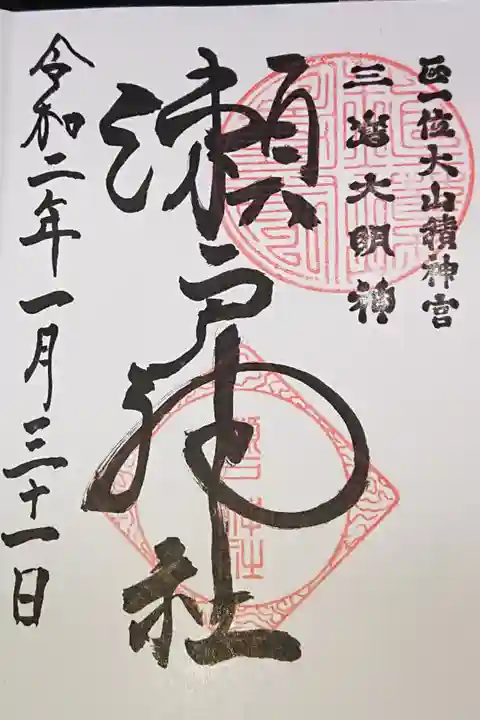 正一位大山積神宮
三嶌大明神
瀬戸神社
令和二年一月三十一日